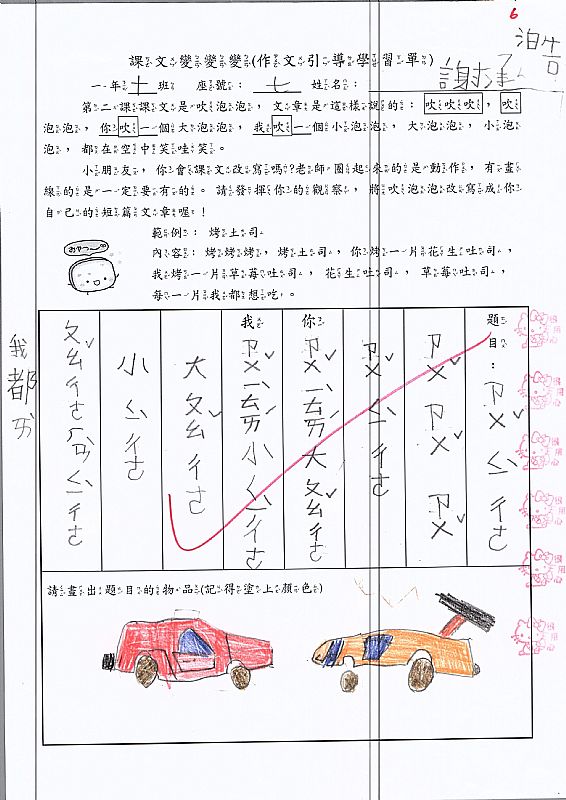 6
泊諺
課文變變變(作文引導學習單)
一年十班 座號：七 姓名：謝承
第二課課文是吹泡泡，文章是這樣說的：吹吹吹，吹
泡泡，你吹一個大泡泡，我吹一個小泡泡，大泡泡，小泡
泡，都在空中笑哇笑。
小朋友，你會課文改寫嗎?老師圈起來的是動作，有畫
線的是一定要有的。請發揮你的觀察，將吹泡泡改寫成你
自己的短篇文章喔！
範例：烤土司
內容：烤烤烤，烤土司，你烤一片花生吐司，
我烤一片草莓吐司，花生吐司，草莓吐司，
每一片我都想吃。
題目：ㄗㄨˇㄑㄧˋㄔㄜ
ㄗㄨˇㄗㄨˇㄗㄨˇ
ㄗㄨˇㄑㄧˋㄔㄜ
你ㄗㄨˇㄧˊㄊㄞˊ大ㄆㄠˇㄔㄜ
我ㄗㄨˇㄧˊㄊㄞˊ小ㄑㄧˋㄔㄜ
大ㄆㄠˇㄔㄜ
小ㄑㄧˋㄔㄜ
ㄆㄠˇㄔㄜ ㄑㄧˋㄔㄜ
我都ㄞˋ
請畫出題目的物品(記得塗上顏色)
很用心
很用心
很用心
很用心
很用心
很用心